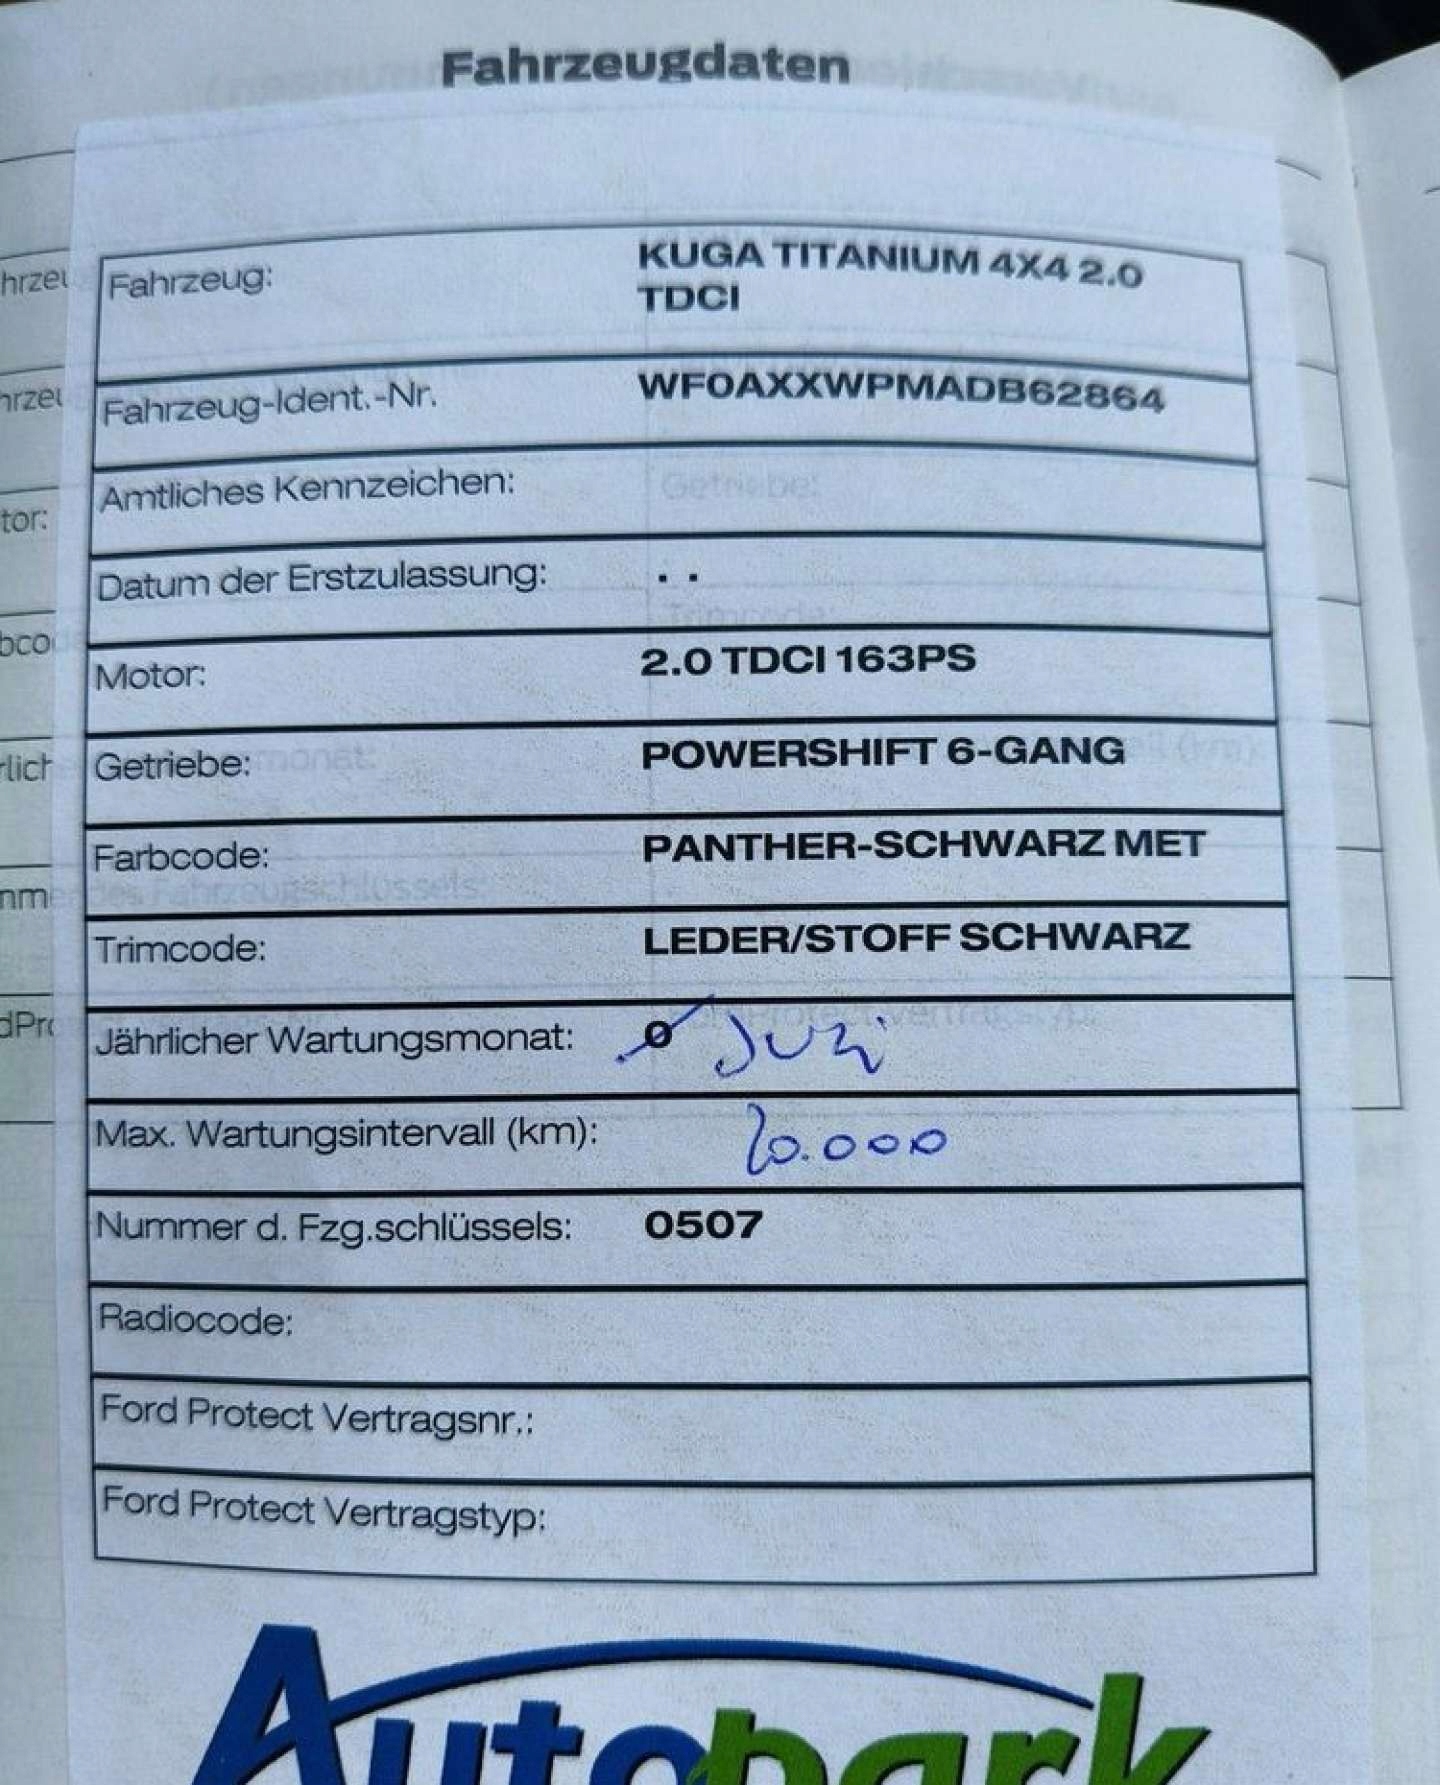 Fahrzeugdaten
Fahrzeug: KUGA TITANIUM 4X4 2.0
TDCI
Fahrzeug-Ident.-Nr. WF0AXXWPMADB62864
Amtliches Kennzeichen:
Datum der Erstzulassung: . .
Motor: 2.0 TDCI 163PS
Getriebe: POWERSHIFT 6-GANG
Farbcode: PANTHER-SCHWARZ MET
Trimcode: LEDER/STOFF SCHWARZ
Jährlicher Wartungsmonat: 0
Max. Wartungsintervall (km): 20.000
Nummer d. Fzg.schlüssels: 0507
Radiocode:
Ford Protect Vertragsnr.:
Ford Protect Vertragstyp:
Autopark